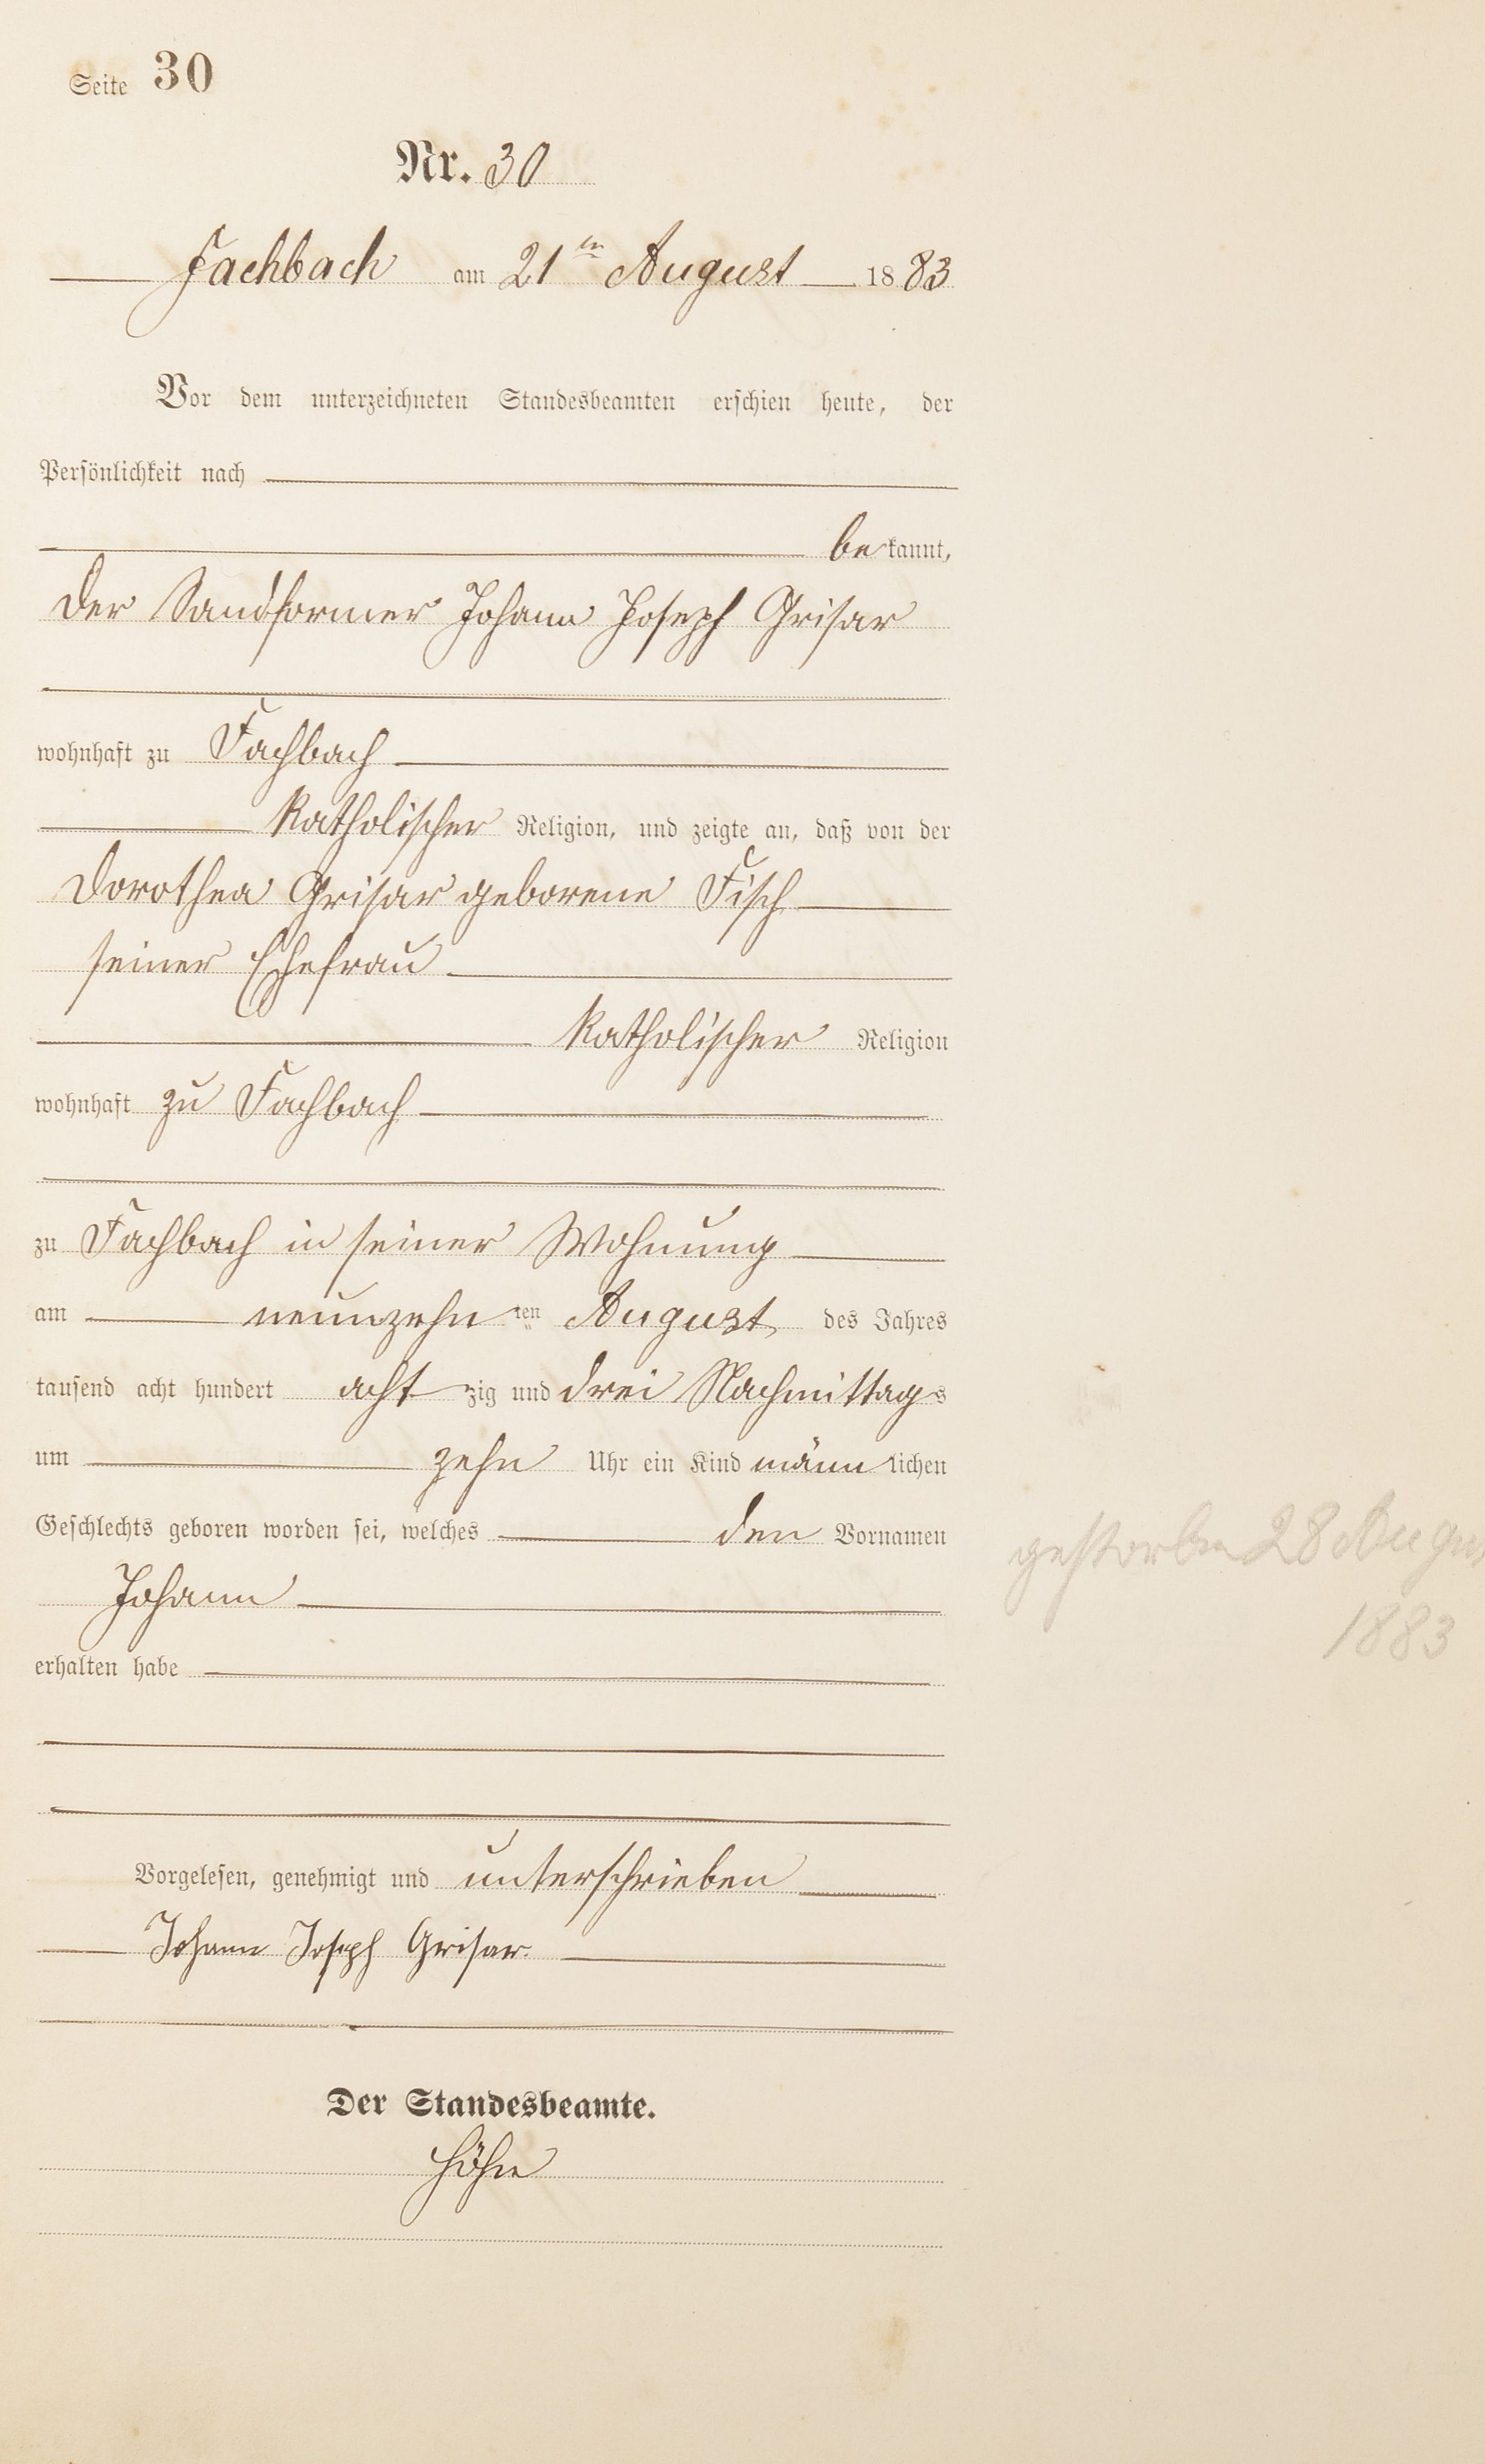 Seite 30
Nr. 30
Fachbach am 21ten August 1883
Vor dem unterzeichneten Standesbeamten erschien heute, der
Persönlichkeit nach
bekannt,
der Sandformer Johann Joseph Grisar
wohnhaft zu Fachbach
katholischer Religion, und zeigte an, daß von der
Dorothea Grisar geborene Fisch
seiner Ehefrau
katholischer Religion
wohnhaft zu Fachbach
zu Fachbach in seiner Wohnung
am neunzehnten August des Jahres
tausend acht hundert achtzig und drei Nachmittags
um zehn Uhr ein Kind männlichen
Geschlechts geboren worden sei, welches den Vornamen
Johann
gestorben 28 Augus
1883
erhalten habe
Vorgelesen, genehmigt und unterschrieben
Johann Joseph Grisar.
Der Standesbeamte.
Höhn